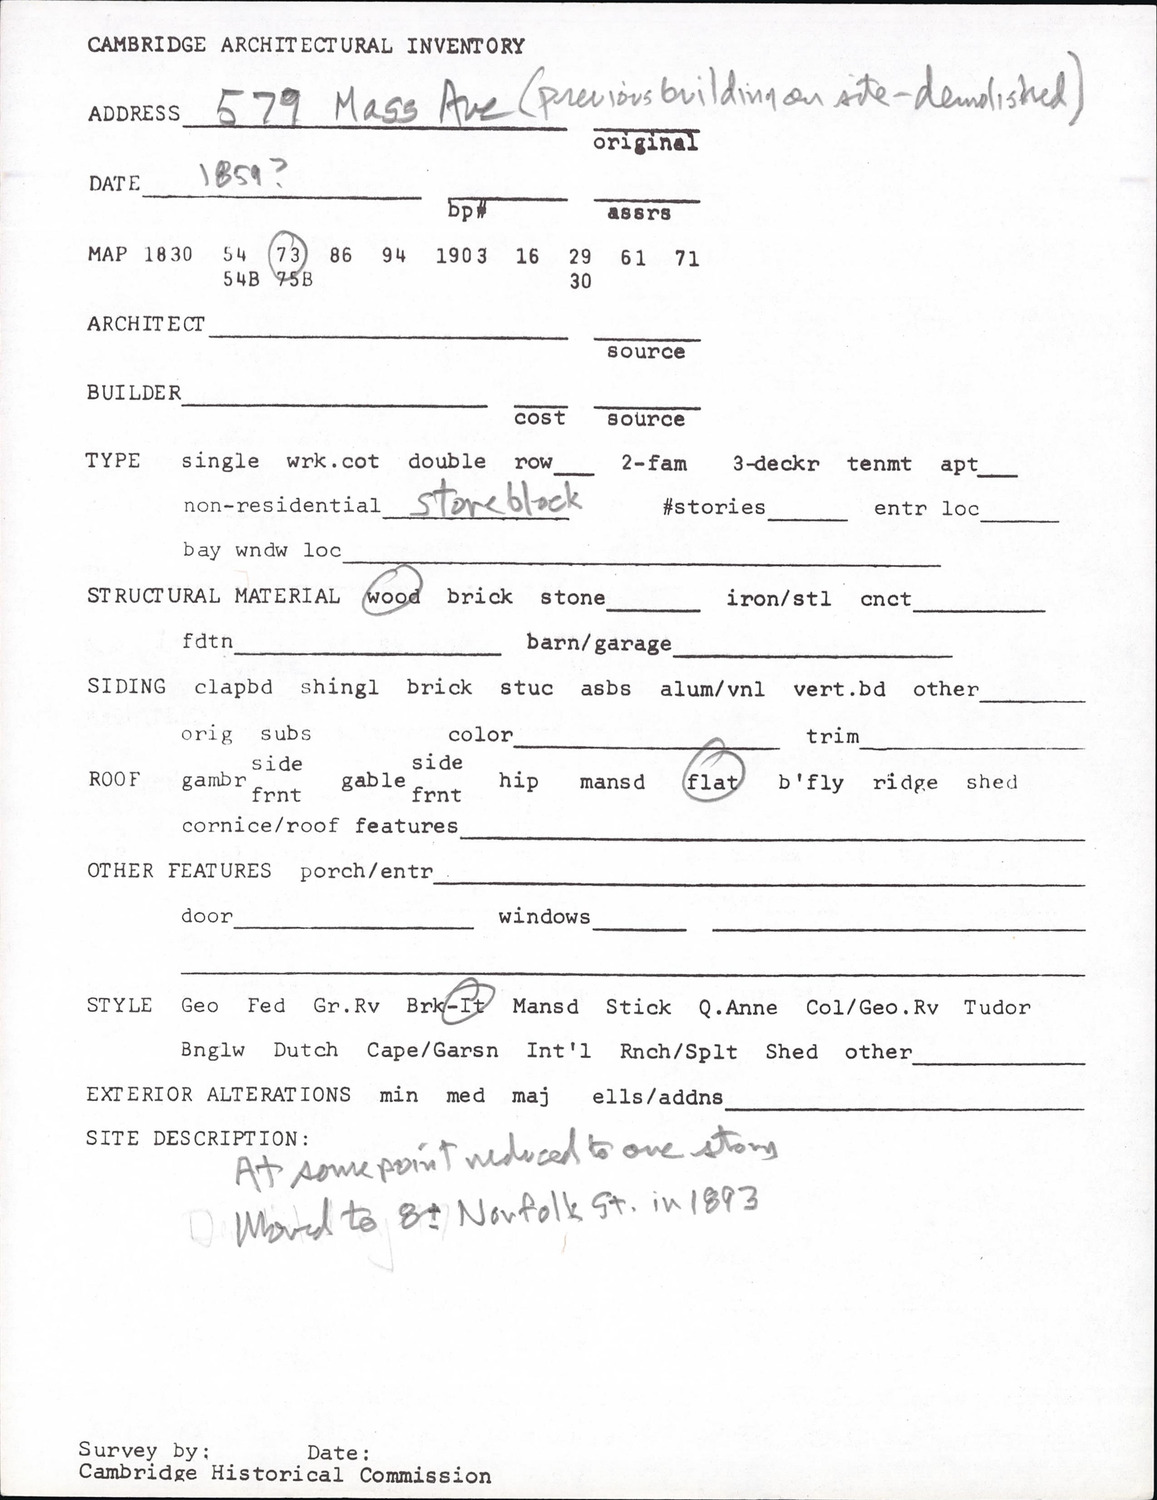 CAMBRIDGE ARCHITECTURAL INVENTORY
ADDRESS 579 Mass Ave (previous building on site - demolished)
original
DATE 1859?
bp# assrs
MAP 1830 54 73 86 94 1903 16 29 61 71
54B 75B 30
ARCHITECT
source
BUILDER
cost source
TYPE single wrk.cot double row 2-fam 3-deckr tenmt apt
non-residential store block #stories entr loc
bay wndw loc
STRUCTURAL MATERIAL wood brick stone iron/stl cnct
fdtn barn/garage
SIDING clapbd shingl brick stuc asbs alum/vnl vert.bd other
orig subs color trim
side side
ROOF gambr gable hip mansd flat b'fly ridge shed
frnt frnt
cornice/roof features
OTHER FEATURES porch/entr
door windows
STYLE Geo Fed Gr.Rv Brk-It Mansd Stick Q.Anne Col/Geo.Rv Tudor
Bnglw Dutch Cape/Garsn Int'l Rnch/Splt Shed other
EXTERIOR ALTERATIONS min med maj ells/addns
SITE DESCRIPTION:
At some point reduced to one story
Moved to 8± Norfolk St. in 1893
Survey by: Date:
Cambridge Historical Commission